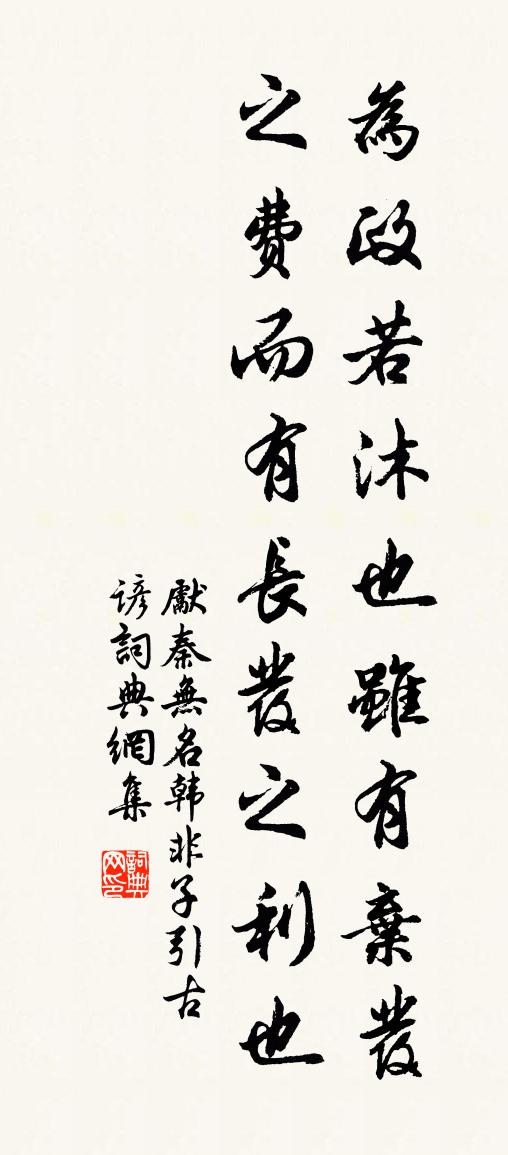 為政若沐也雖有棄發
之費而有長發之利也
獻秦無名韩非子引古
谚詞典網集
詞典网印